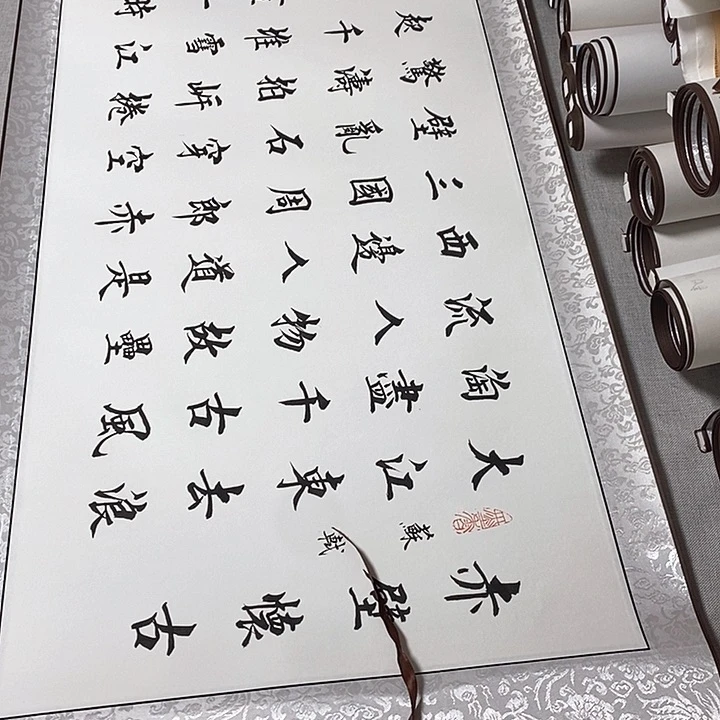 赤壁懷古
蘇軾
大江東去浪
淘盡千古風
流人物故壘
西邊人道是
三國周郎赤
壁亂石穿空
驚濤拍岸捲
起千堆雪江
一時